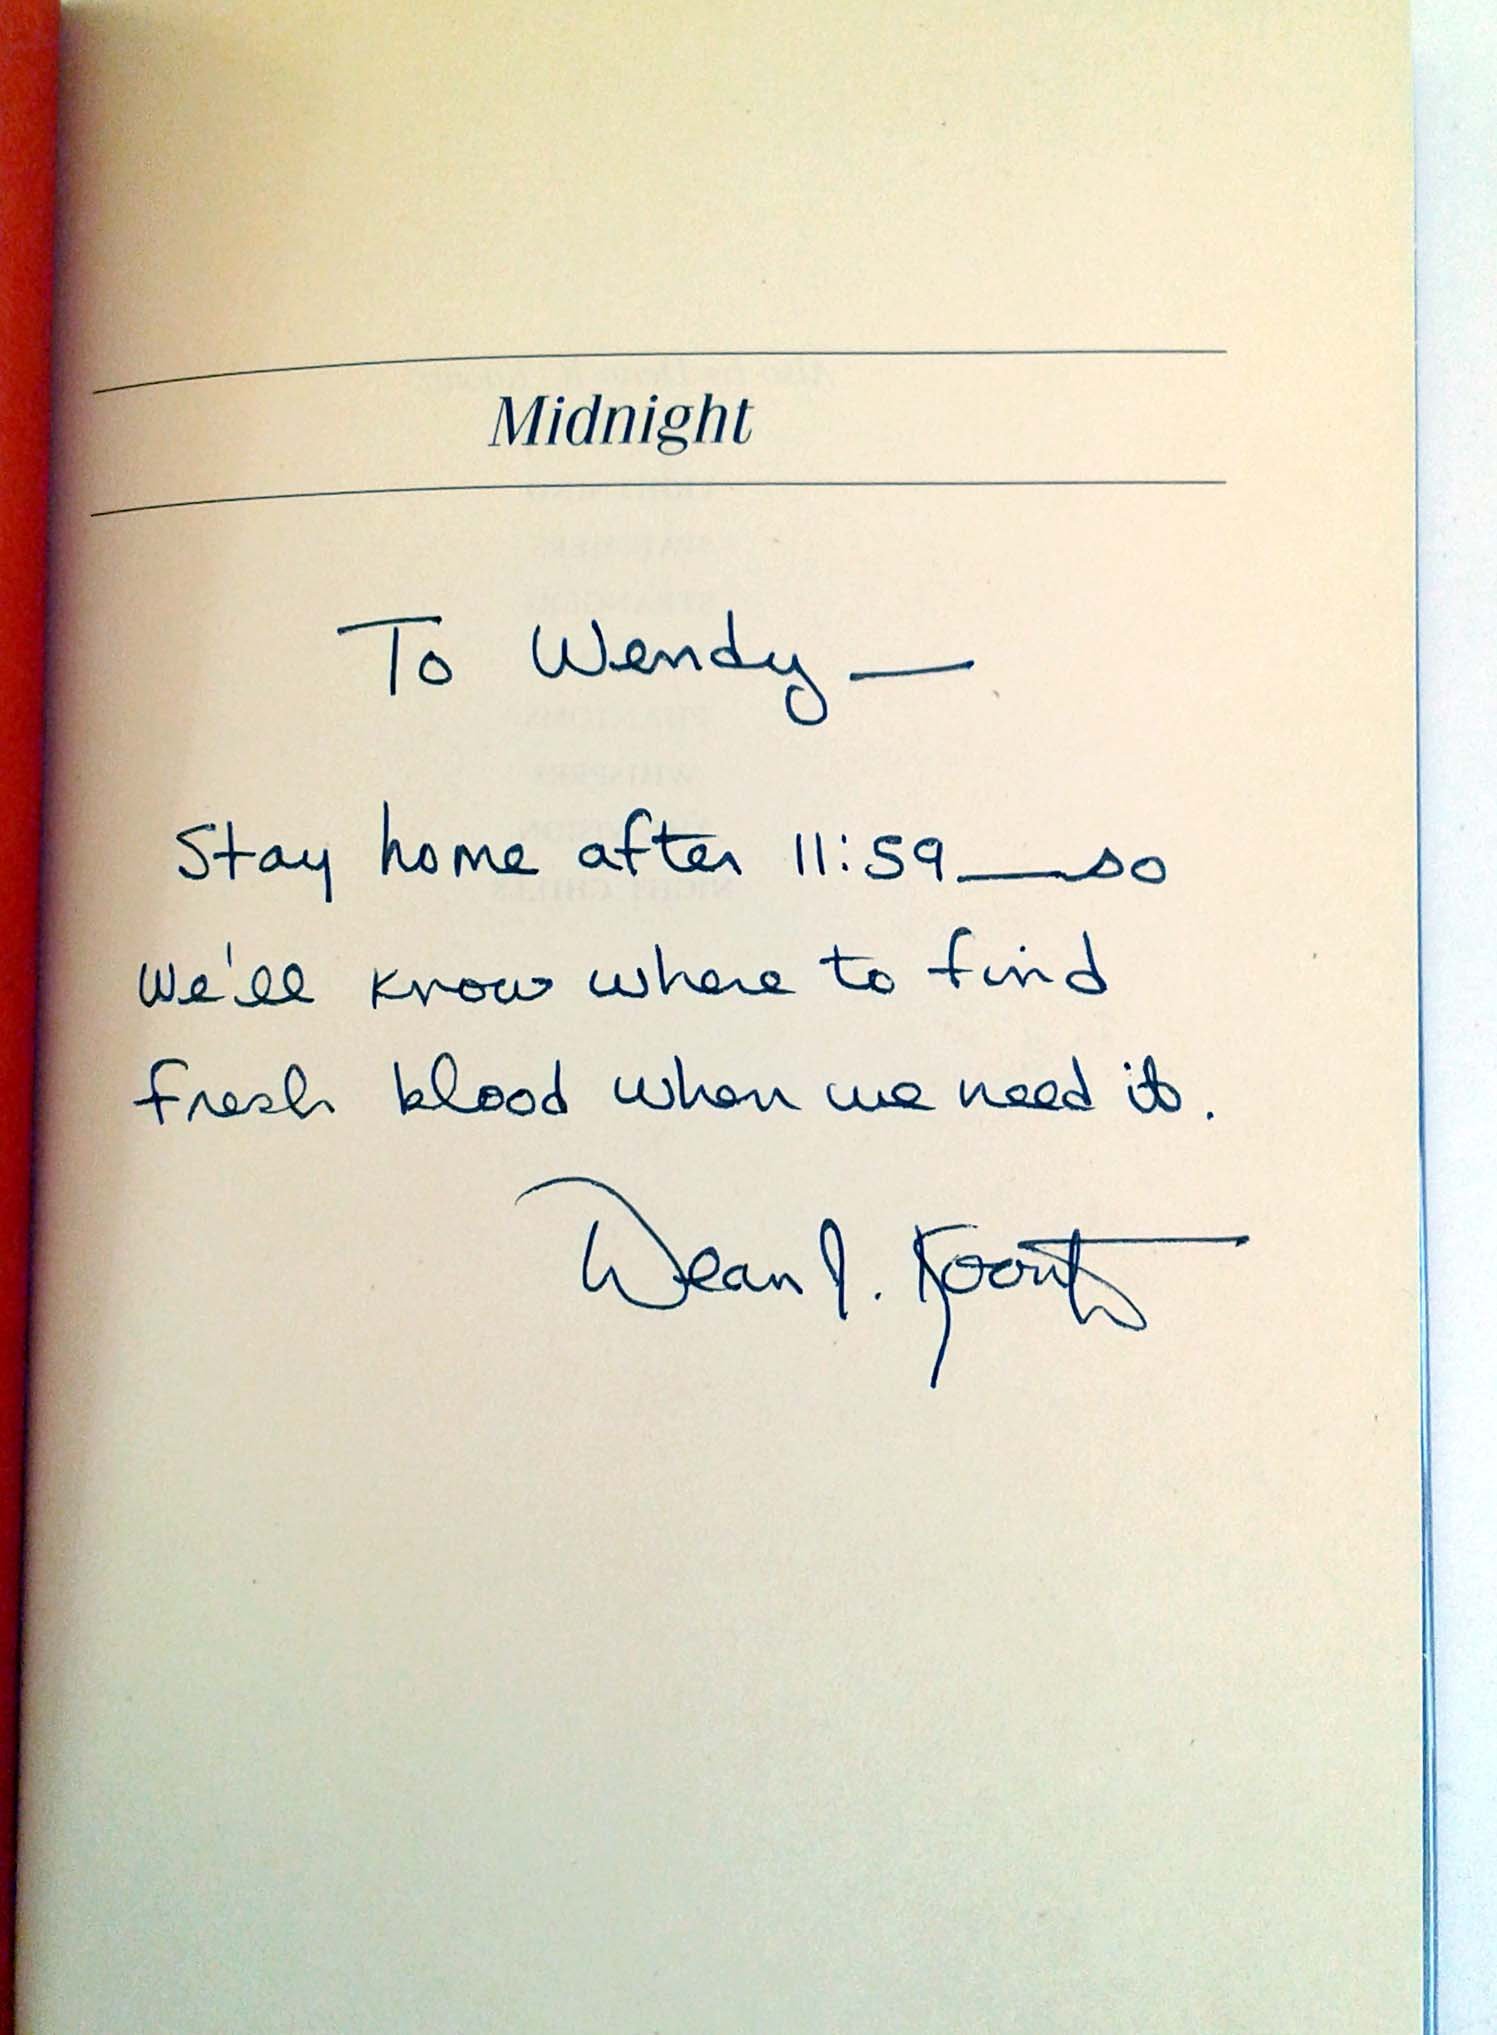 Midnight
To Wendy —
Stay home after 11:59 — so
we'll know where to find
fresh blood when we need it.
Dean R. Koontz